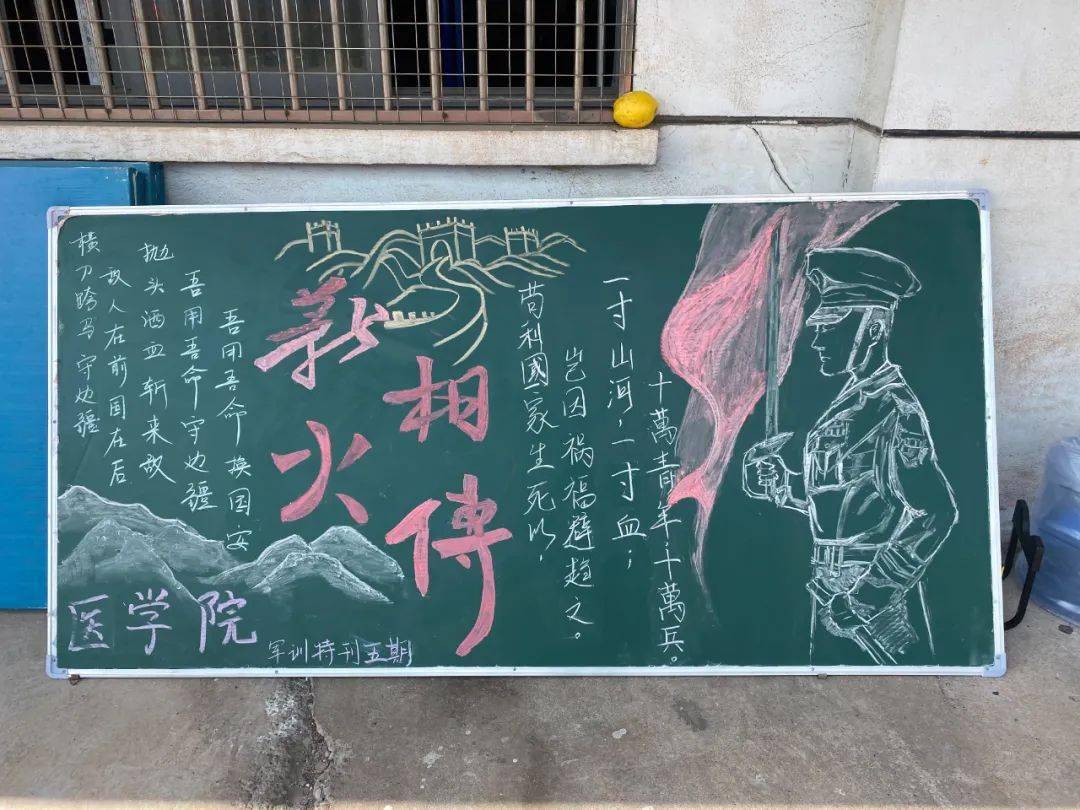 横刀跨马守边疆
敌人在前国在后
抛头洒血斩来敌
吾用吾命守边疆
吾用吾命换国安
薪火
相傳
苟利國家生死以，
岂因祸福避趋之。
一寸山河，一寸血；
十萬青年十萬兵。
医学院
军训特刊五期